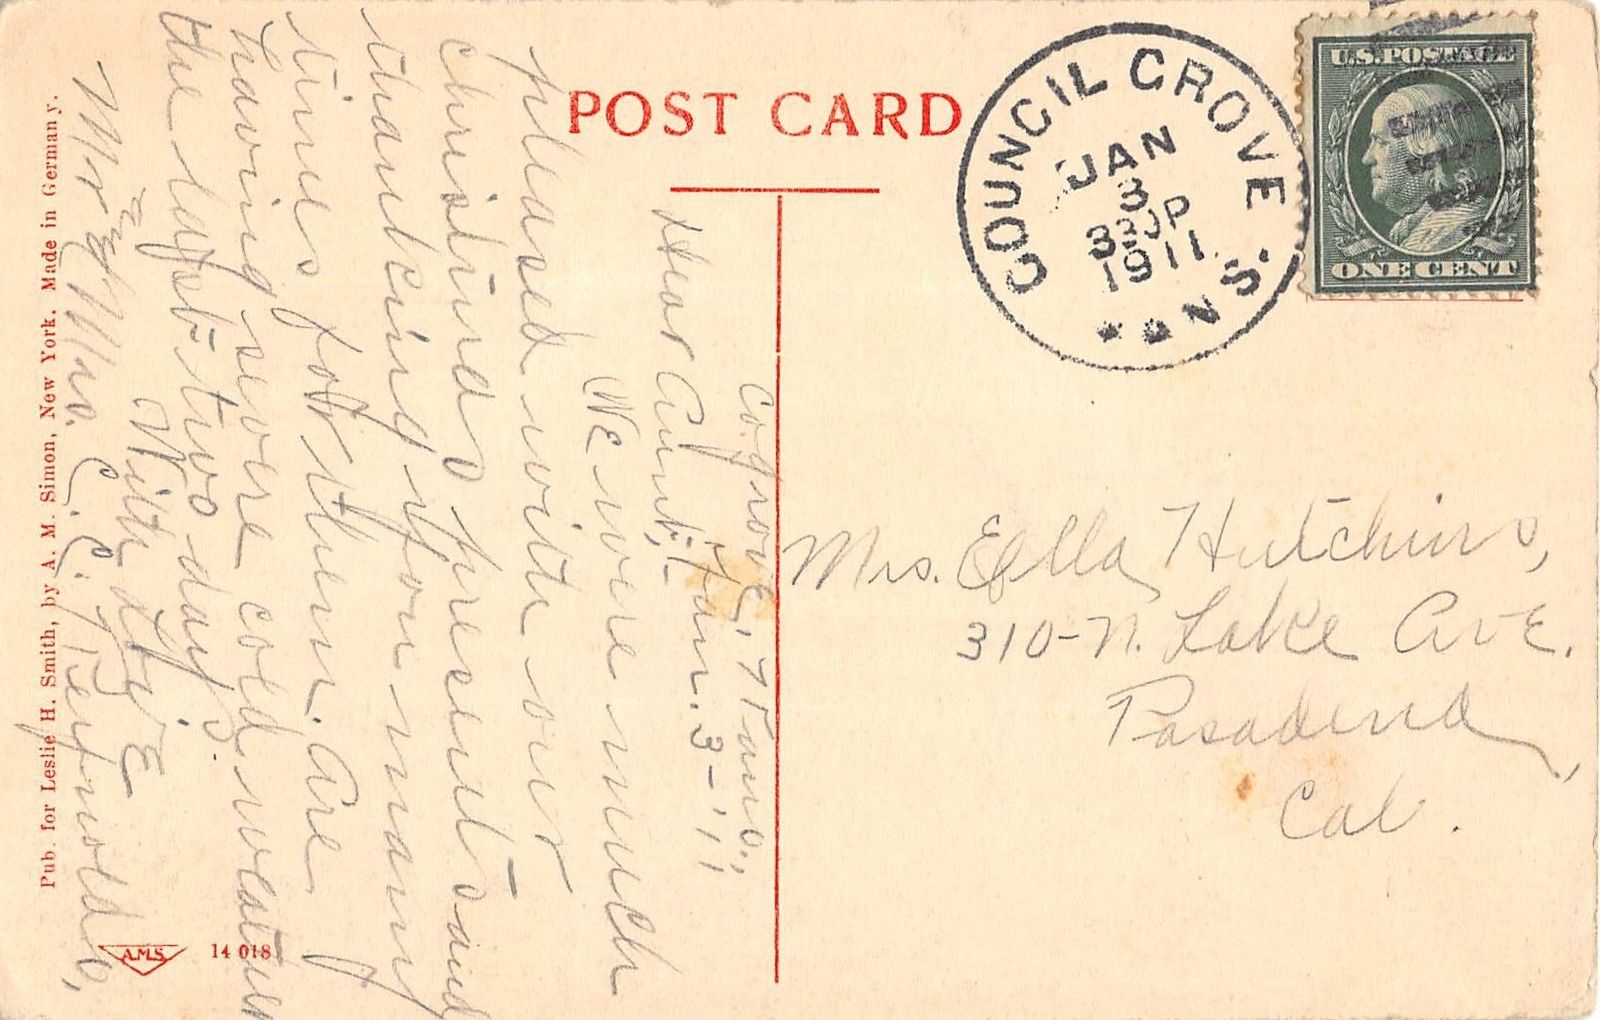 POST CARD
COUNCIL GROVE
KANS.
JAN
3
330P
1911
U.S. POSTAGE
ONE CENT
Mrs. Ella Hutchins,
310-N. Lake Ave.
Pasadena,
Cal.
Co. Grove, Kans.,
Jan. 3-'11
Dear Aunt,-
We were much
pleased with our
christmas presents and
thanking you many
times for them. Are
having severe cold weather
the last two days.
With love
Mr & Mrs. C. C. Reynolds,
Pub. for Leslie H. Smith, by A. M. Simon, New York. Made in Germany.
A.M.S.
14 018